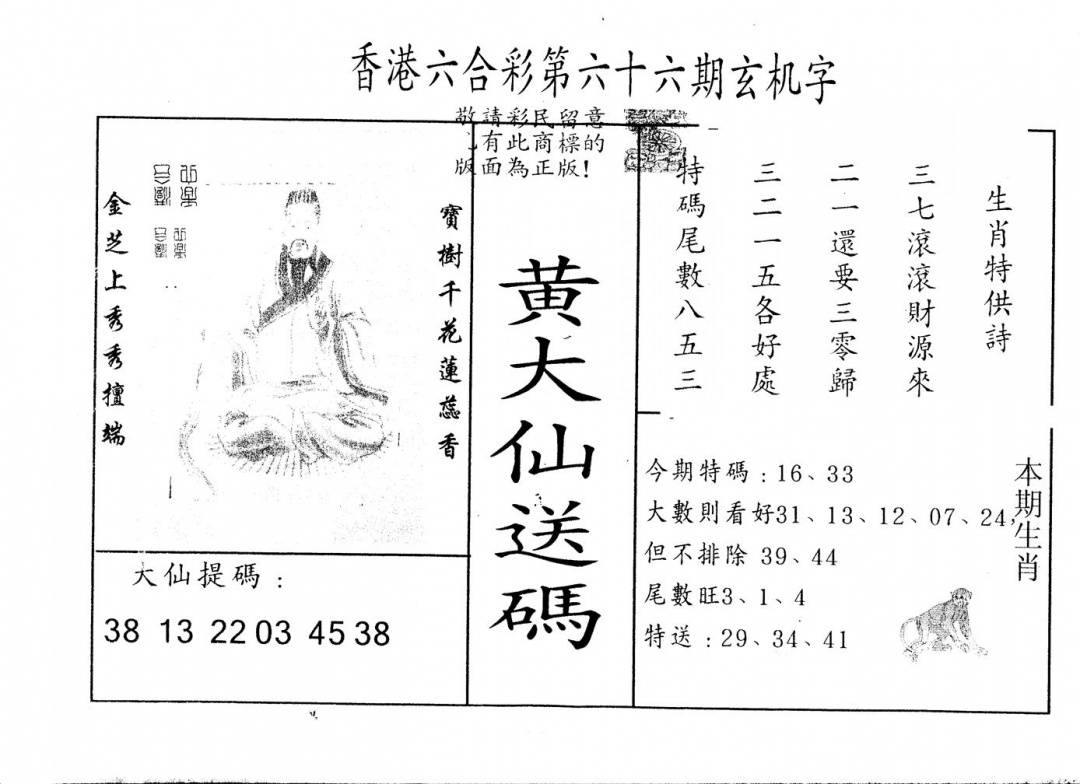 香港六合彩第六十六期玄机字
敬請彩民留意
有此商標的
版面為正版!
寶樹千花蓮蕊香
金芝上秀秀擅端
大仙提碼:
38 13 22 03 45 38
黄大仙送碼
生肖特供詩
三七滾滾財源來
二一還要三零歸
三二一五各好處
特碼尾數八五三
今期特碼:16、33
大數則看好31、13、12、07、24,
但不排除 39、44
尾數旺3、1、4
特送:29、34、41
本期生肖